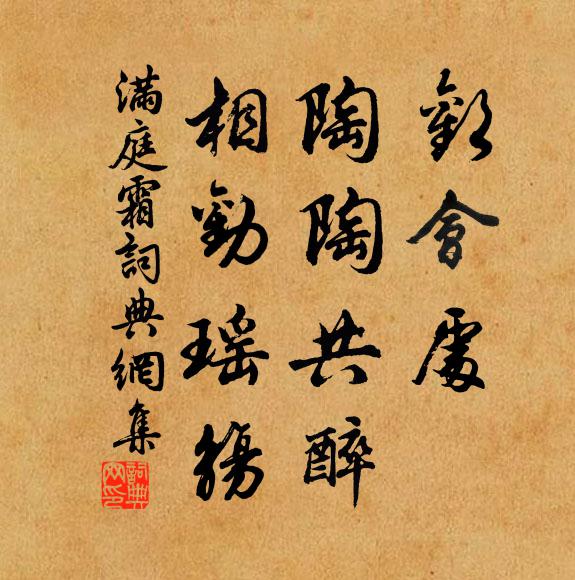 歡會處
陶陶共醉
相勸瑤觴
滿庭霜詞典網集
詞典網印